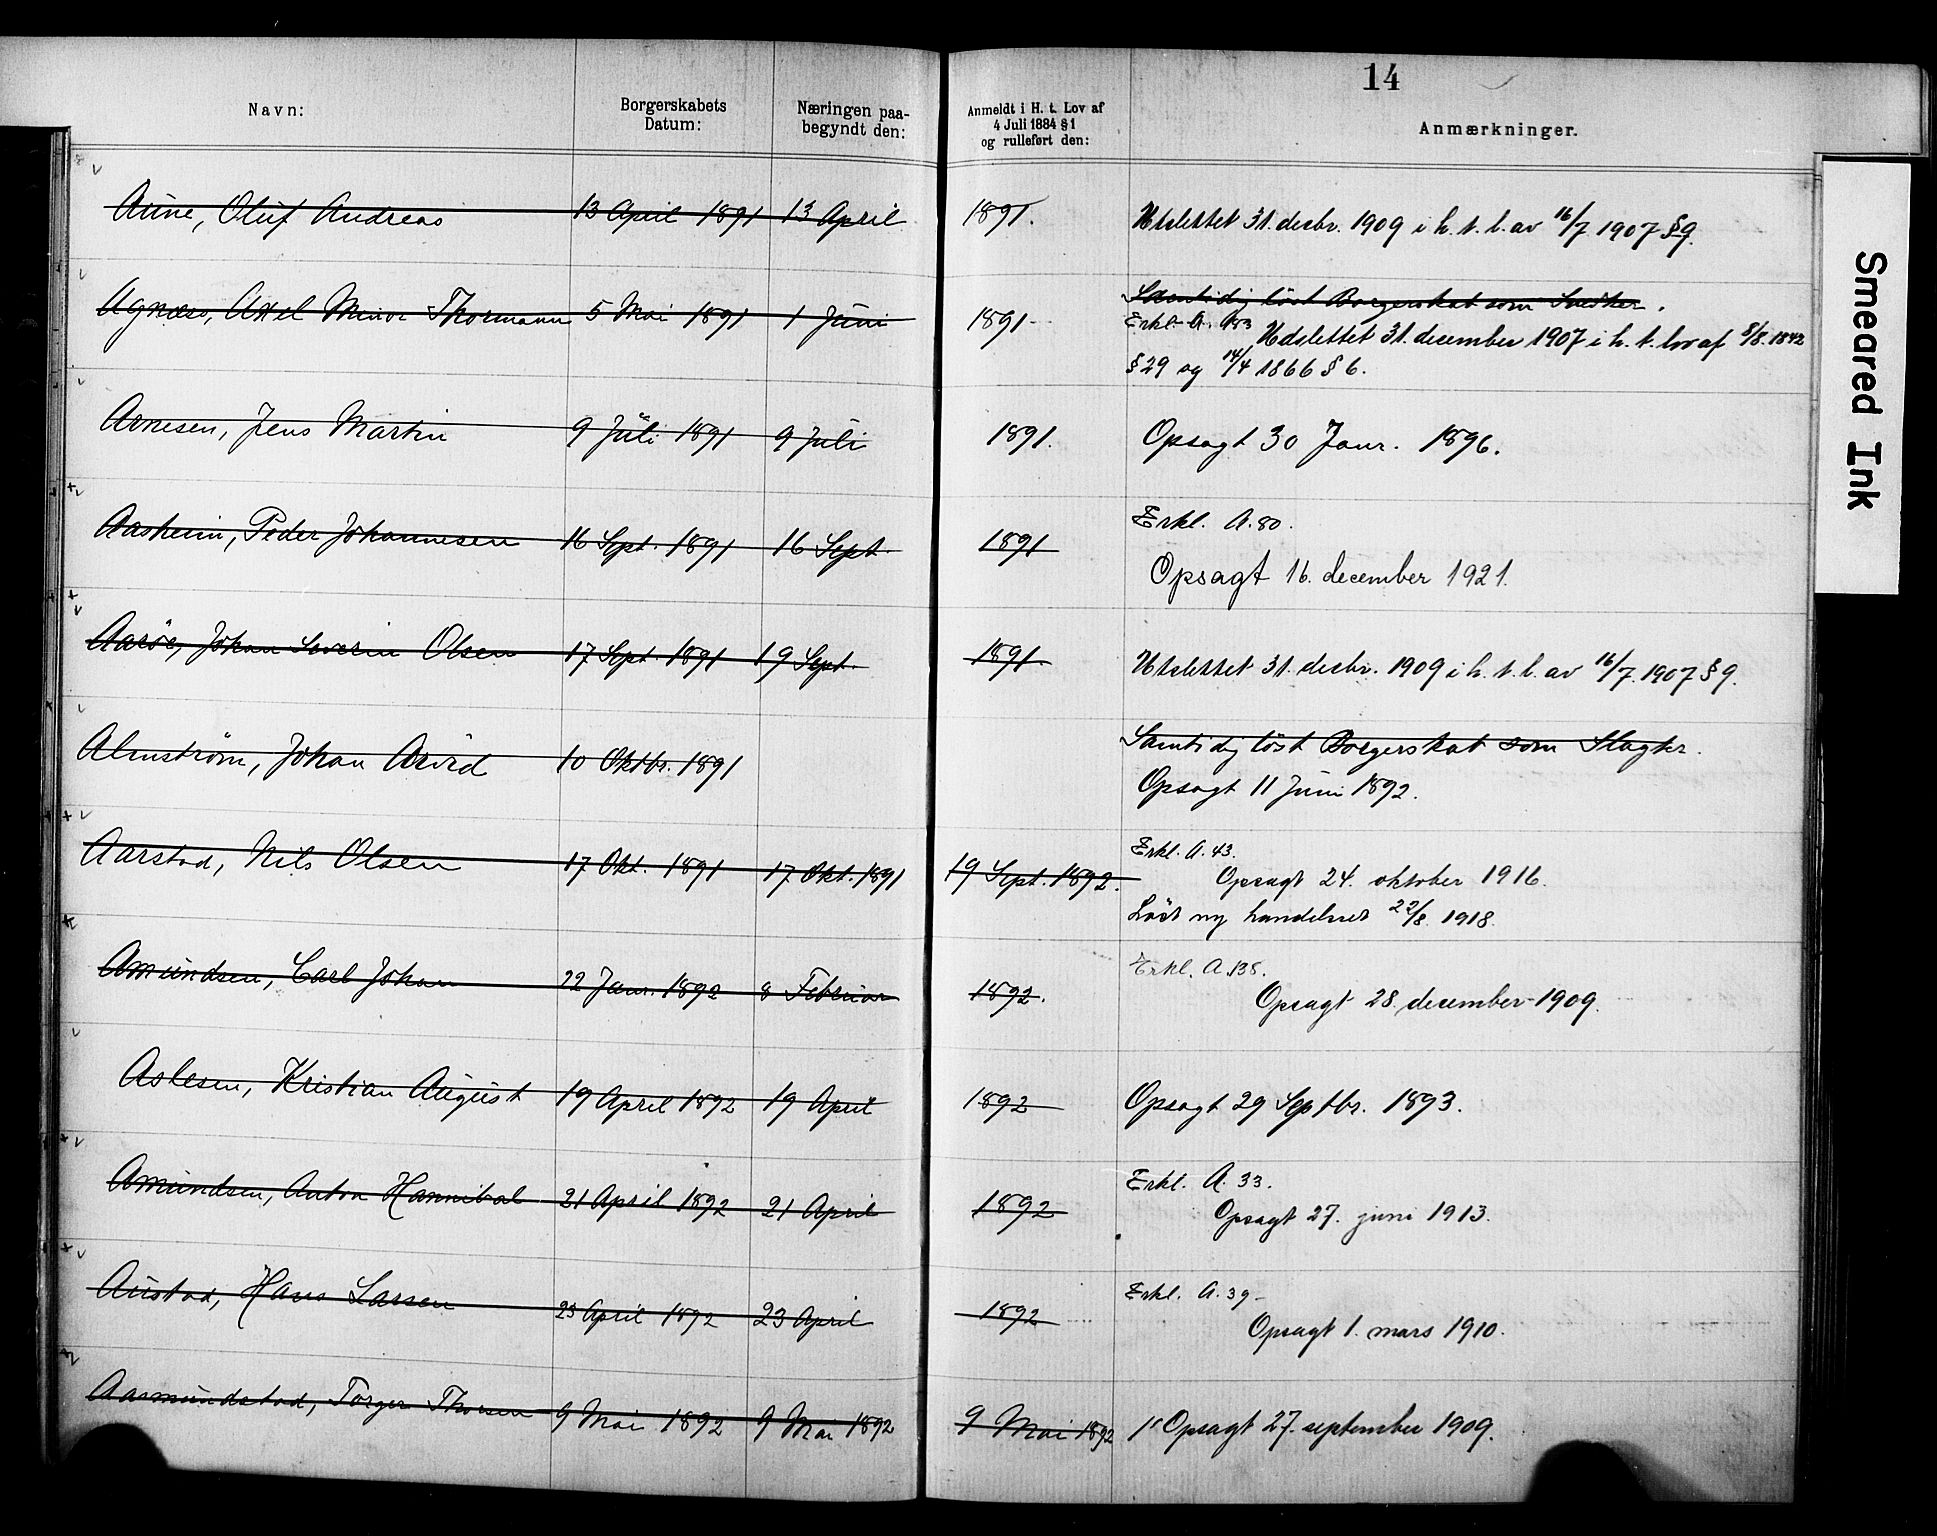 14
Navn:
Borgerskabets
Datum:
Næringen paa-
begyndt den:
Anmeldt i H. t. Lov af
4 Juli 1884 § 1
og rulleført den:
Anmærkninger.
Aune, Oluf Andreas 13 April 1891 13 April 1891. Utslettet 31. desbr. 1909 i h. t. l. av 16/7 1907 § 9.
Agnæs, Axel Minor Thormann 5 Mai 1891 1 Juni 1891 Samtidig löst Borgerskab som Snedker.
Erkl. A. Udslettet 31. december 1907 i h. t. lov af 8/8. 1842
§ 29 og 14/4 1866 § 6.
Arnesen, Jens Martin 9 Juli 1891 9 Juli 1891. Opsagt 30 Janr. 1896.
Aasheim, Peder Johannesen 16 Sept. 1891 16 Sept. 1891 Erkl. A. 80.
Opsagt 16. december 1921.
Aaröe, Johan Severin Olsen 17 Sept. 1891 19 Sept. 1891. Utslettet 31. desbr. 1909 i h. t. l. av 16/7. 1907 § 9.
Almström, Johan Arvid 10 Oktbr. 1891 Samtidig löst Borgerskab som Slagter.
Opsagt 11 Juni 1892.
Aarstad, Nils Olsen 17 Okt. 1891 17 Okt. 1891 19 Sept. 1892. Erkl. A. 43.
Opsagt 24. oktober 1916.
Löst ny handelsret 22/8. 1918.
Amundsen, Carl Johan 22 Janr. 1892 8 Februar 1892. Erkl. A. 138.
Opsagt 28. december 1909.
Aslesen, Kristian August 19 April 1892 19 April 1892 Opsagt 29 Septbr. 1893.
Amundsen, Anton Hannibal 21 April 1892 21 April 1892 Erkl. A. 33.
Opsagt 27. juni 1913.
Austad, Hans Larsen 23 April 1892 23 April 1892 Erkl. A. 39
Opsagt 1. mars 1910.
Aasmundstad, Torger Thorsen 9 Mai 1892 9 Mai 1892 9 Mai 1892 Opsagt 27. september 1909.
Smeared Ink